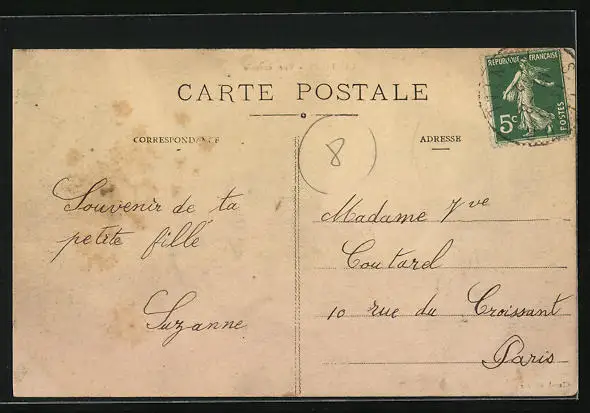 CARTE POSTALE
CORRESPONDENCE
ADRESSE
RÉPUBLIQUE FRANÇAISE
5c
POSTES
8
Souvenir de ta
petite fille
Suzanne
Madame Vve
Coutarel
10 rue du Croissant
Paris